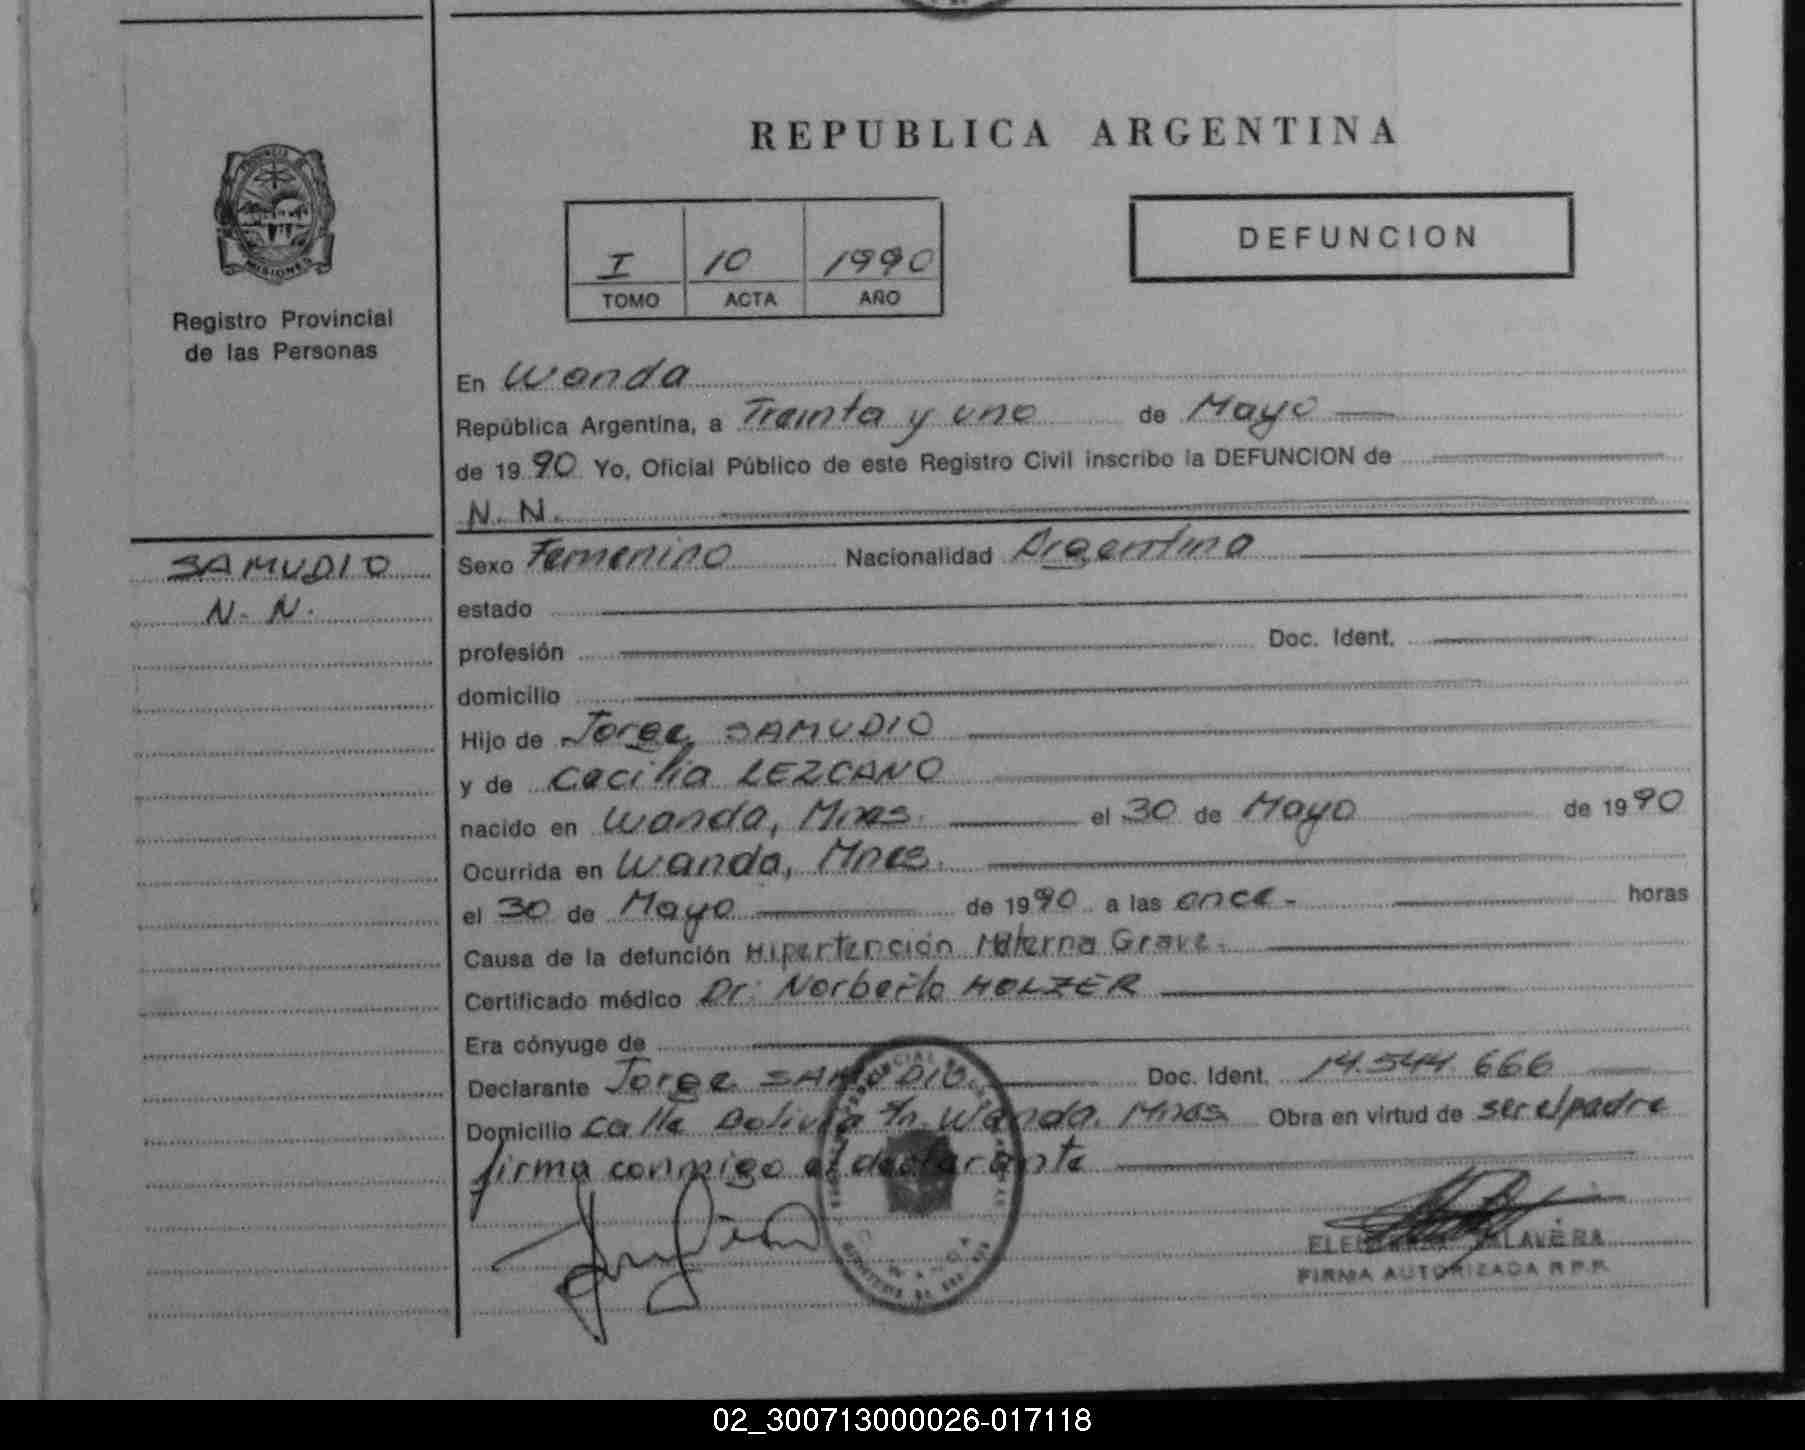 REPUBLICA ARGENTINA
PROVINCIA DE
MISIONES
Registro Provincial
de las Personas
I 10 1990
TOMO ACTA AÑO
DEFUNCION
En Wanda
República Argentina, a Treinta y uno de Mayo
de 1990 Yo, Oficial Público de este Registro Civil inscribo la DEFUNCION de
N. N.
SAMUDIO
N. N.
Sexo Femenino Nacionalidad Argentina
estado
profesión Doc. Ident.
domicilio
Hijo de Jorge SAMUDIO
y de Cecilia LEZCANO
nacido en Wanda, Mnes. el 30 de Mayo de 1990
Ocurrida en Wanda, Mnes.
el 30 de Mayo de 1990 a las once - horas
Causa de la defunción Hipertención Materna Grave.
Certificado médico Dr. Norberto HOLZER
Era cónyuge de
Declarante Jorge SAMUDIO. Doc. Ident. 14.544.666
Domicilio calle Bolivia s/n. Wanda. Mnes Obra en virtud de ser el padre
firma conmigo el declarante
TALAVERA
FIRMA AUTORIZADA R.P.P.
02_300713000026-017118